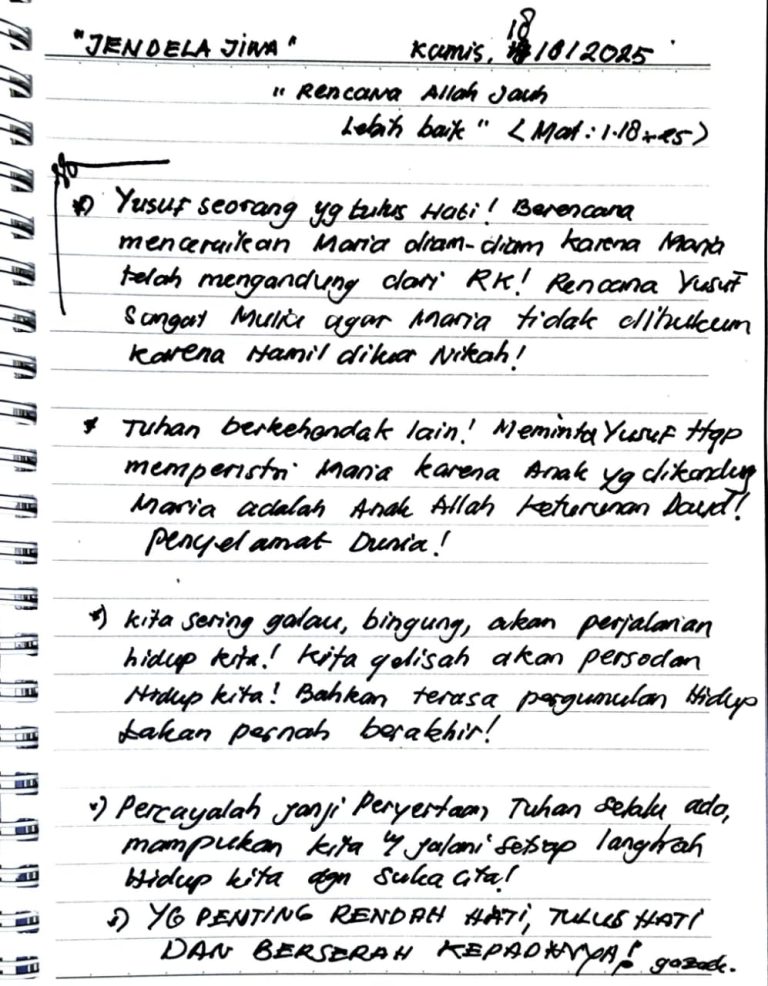 "JENDELA JIWA" Kamis, 18/12/2025
"Rencana Allah Jauh
Lebih baik" <Mat: 1.18-25>
*) Yusuf seorang yg tulus Hati! Berencana
menceraikan Maria diam-diam karena Maria
telah mengandung dari RK! Rencana Yusuf
Sangat Mulia agar Maria tidak dihukum
karena Hamil diluar Nikah!
* Tuhan berkehendak lain! Meminta Yusuf
memperistri Maria karena Anak yg dikandung
Maria adalah Anak Allah keturunan Daud!
Penyelamat Dunia!
*) kita sering galau, bingung, akan perjalanan
hidup kita! Kita gelisah akan persoalan
Hidup kita! Bahkan terasa pergumulan Hidup
takan pernah berakhir!
*) Percayalah janji Penyertaan Tuhan selalu ada,
mampukan kita jalani setiap langkah
Hidup kita dgn suka cita!
*) YG PENTING RENDAH HATI, TULUS HATI
DAN BERSERAH KEPADANYA!